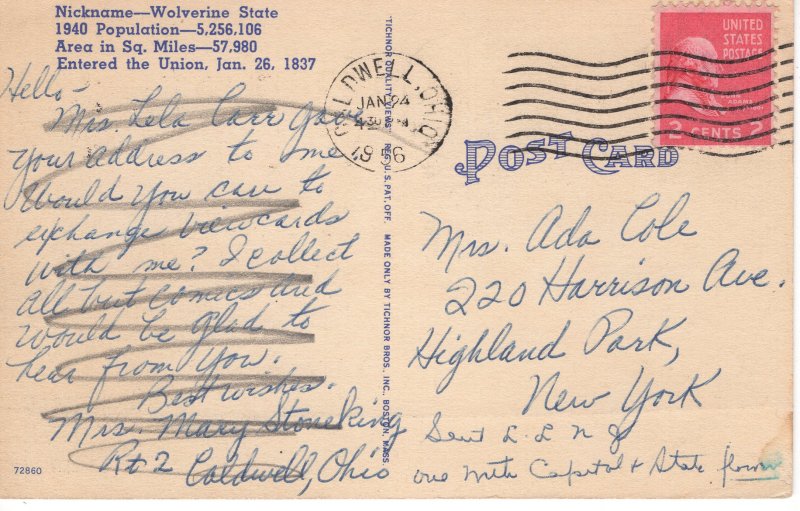 Nickname—Wolverine State
1940 Population—5,256,106
Area in Sq. Miles—57,980
Entered the Union, Jan. 26, 1837
Hello-
Mrs. Lela Carr gave
your address to me
Would you care to
exchange viewcards
with me? I collect
all but comics and
would be glad to
hear from you.
Best wishes.
Mrs. Mary Stoneking
Rt 2 Caldwell, Ohio
72860
"TICHNOR QUALITY VIEWS" REG. U. S. PAT. OFF. MADE ONLY BY TICHNOR BROS. INC., BOSTON, MASS.
CALDWELL, OHIO
JAN 24
1956
UNITED
STATES
POSTAGE
ADAMS
2 CENTS 2
POST CARD
Mrs. Ada Cole
220 Harrison Ave.
Highland Park,
New York
Sent
one with Capitol & State flower